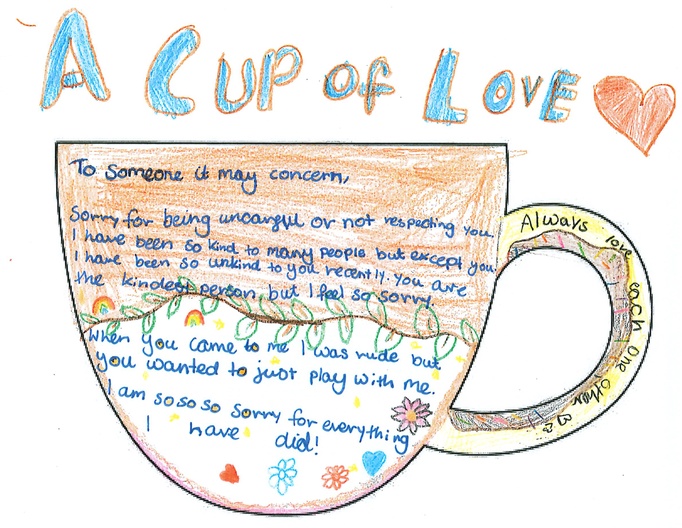 A CUP OF LOVE
To Someone it may concern,
Sorry for being uncareful or not respecting you.
I have been so kind to many people but except you.
I have been so unkind to you recently. You are
the kindest person but I feel so sorry.
When you came to me I was rude but
you wanted to just play with me.
I am so so so sorry for everything
I have did!
Always love each one other